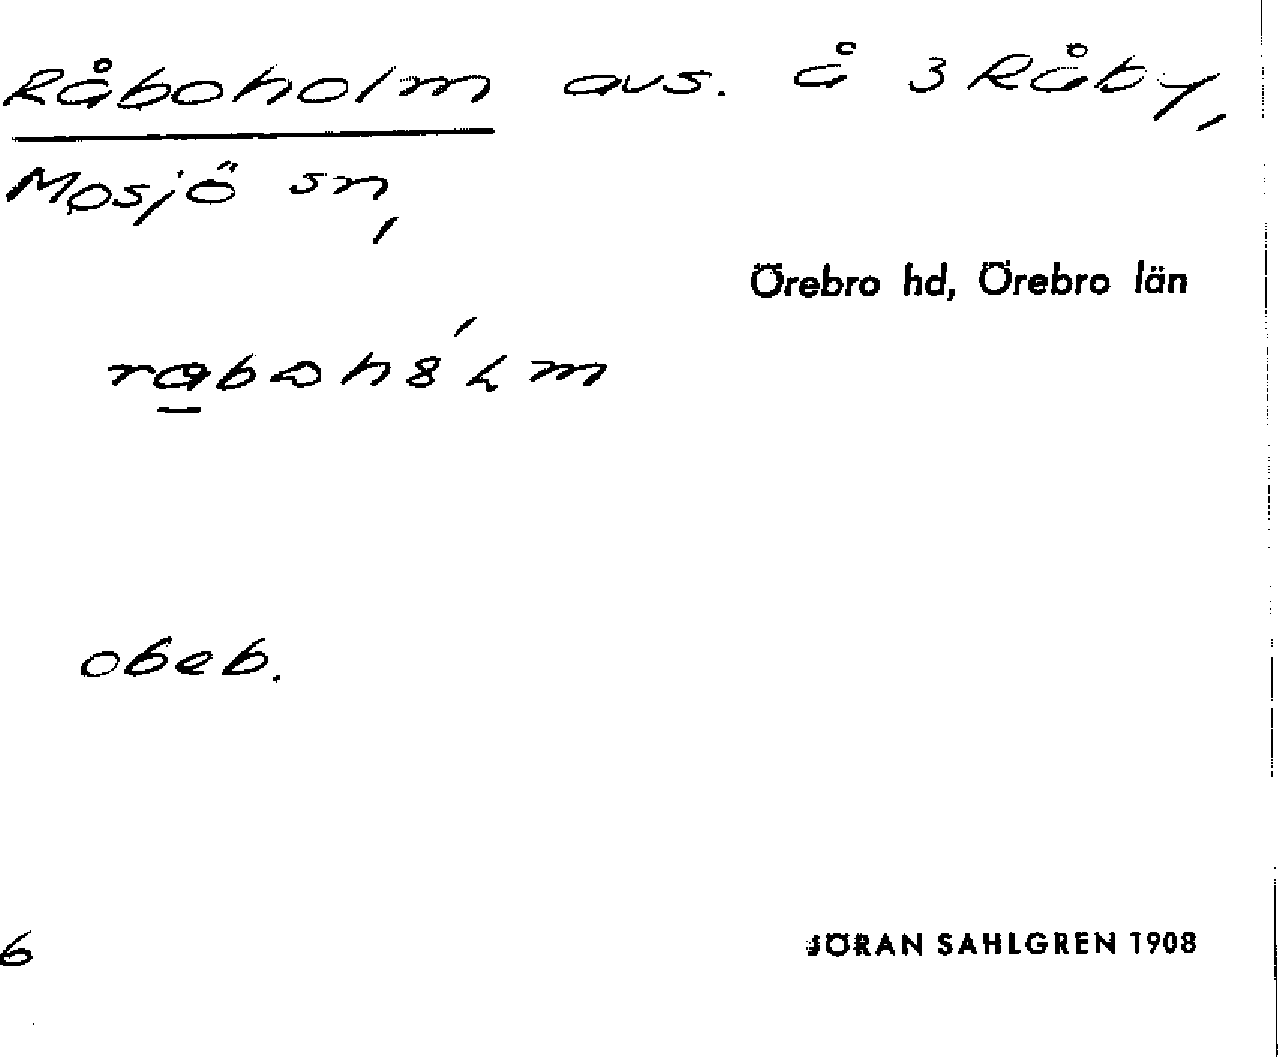 Råboholm avs. å 3 Råby,
Mosjö sn,
Örebro hd, Örebro län
obeb.
6
JÖRAN SAHLGREN 1908